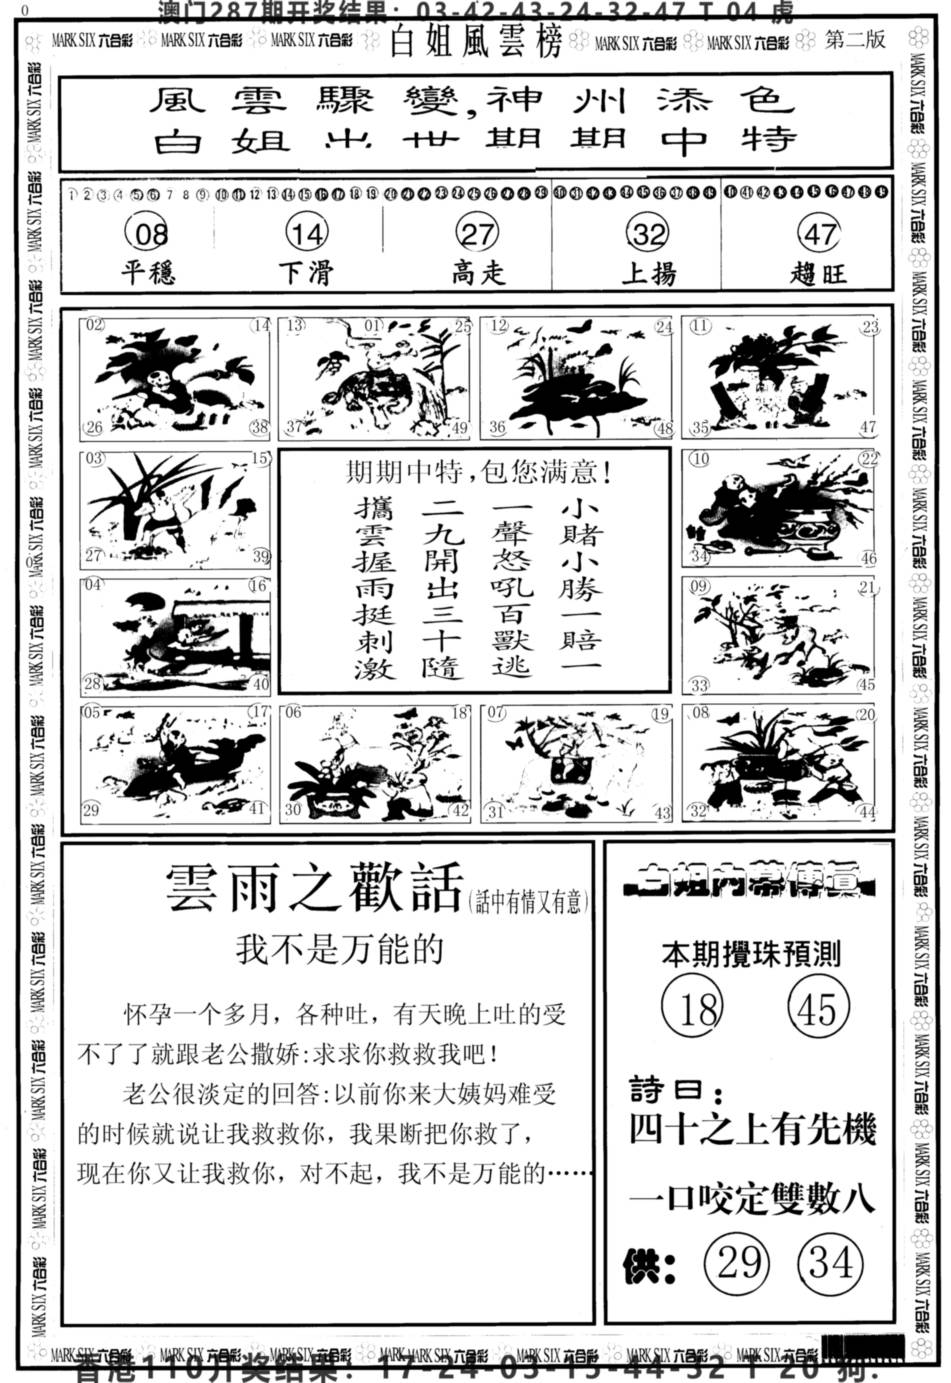 0
澳门287期开奖结果：03-42-43-24-32-47 T 04 虎
MARK SIX 六合彩 MARK SIX 六合彩 MARK SIX 六合彩 白姐風雲榜 MARK SIX 六合彩 MARK SIX 六合彩 第二版
風雲驟變,神州添色
白姐出世期期中特
08 14 27 32 47
平穩 下滑 高走 上揚 趨旺
02 14 13 01 25 12 24 11 23
26 38 37 49 36 48 35 47
03 15
27 39
04 16
28 40
期期中特,包您满意!
小賭小勝一賠一
一聲怒吼百獸逃
二九開出三十隨
攜雲握雨挺刺激
10 22
34 46
09 21
33 45
05 17 06 18 07 19 08 20
29 41 30 42 31 43 32 44
雲雨之歡話(話中有情又有意)
我不是万能的
怀孕一个多月，各种吐，有天晚上吐的受
不了了就跟老公撒娇:求求你救救我吧！
老公很淡定的回答:以前你来大姨妈难受
的时候就说让我救救你，我果断把你救了，
现在你又让我救你，对不起，我不是万能的……
白姐內幕傳真
本期攪珠預測
18 45
詩曰：
四十之上有先機
一口咬定雙數八
供：29 34
MARK SIX 六合彩 MARK SIX 六合彩 MARK SIX 六合彩 MARK SIX 六合彩 MARK SIX 六合彩 MARK SIX 六合彩 MARK SIX 六合彩
香港110开奖结果：17-24-03-15-44-32 T 20 狗.